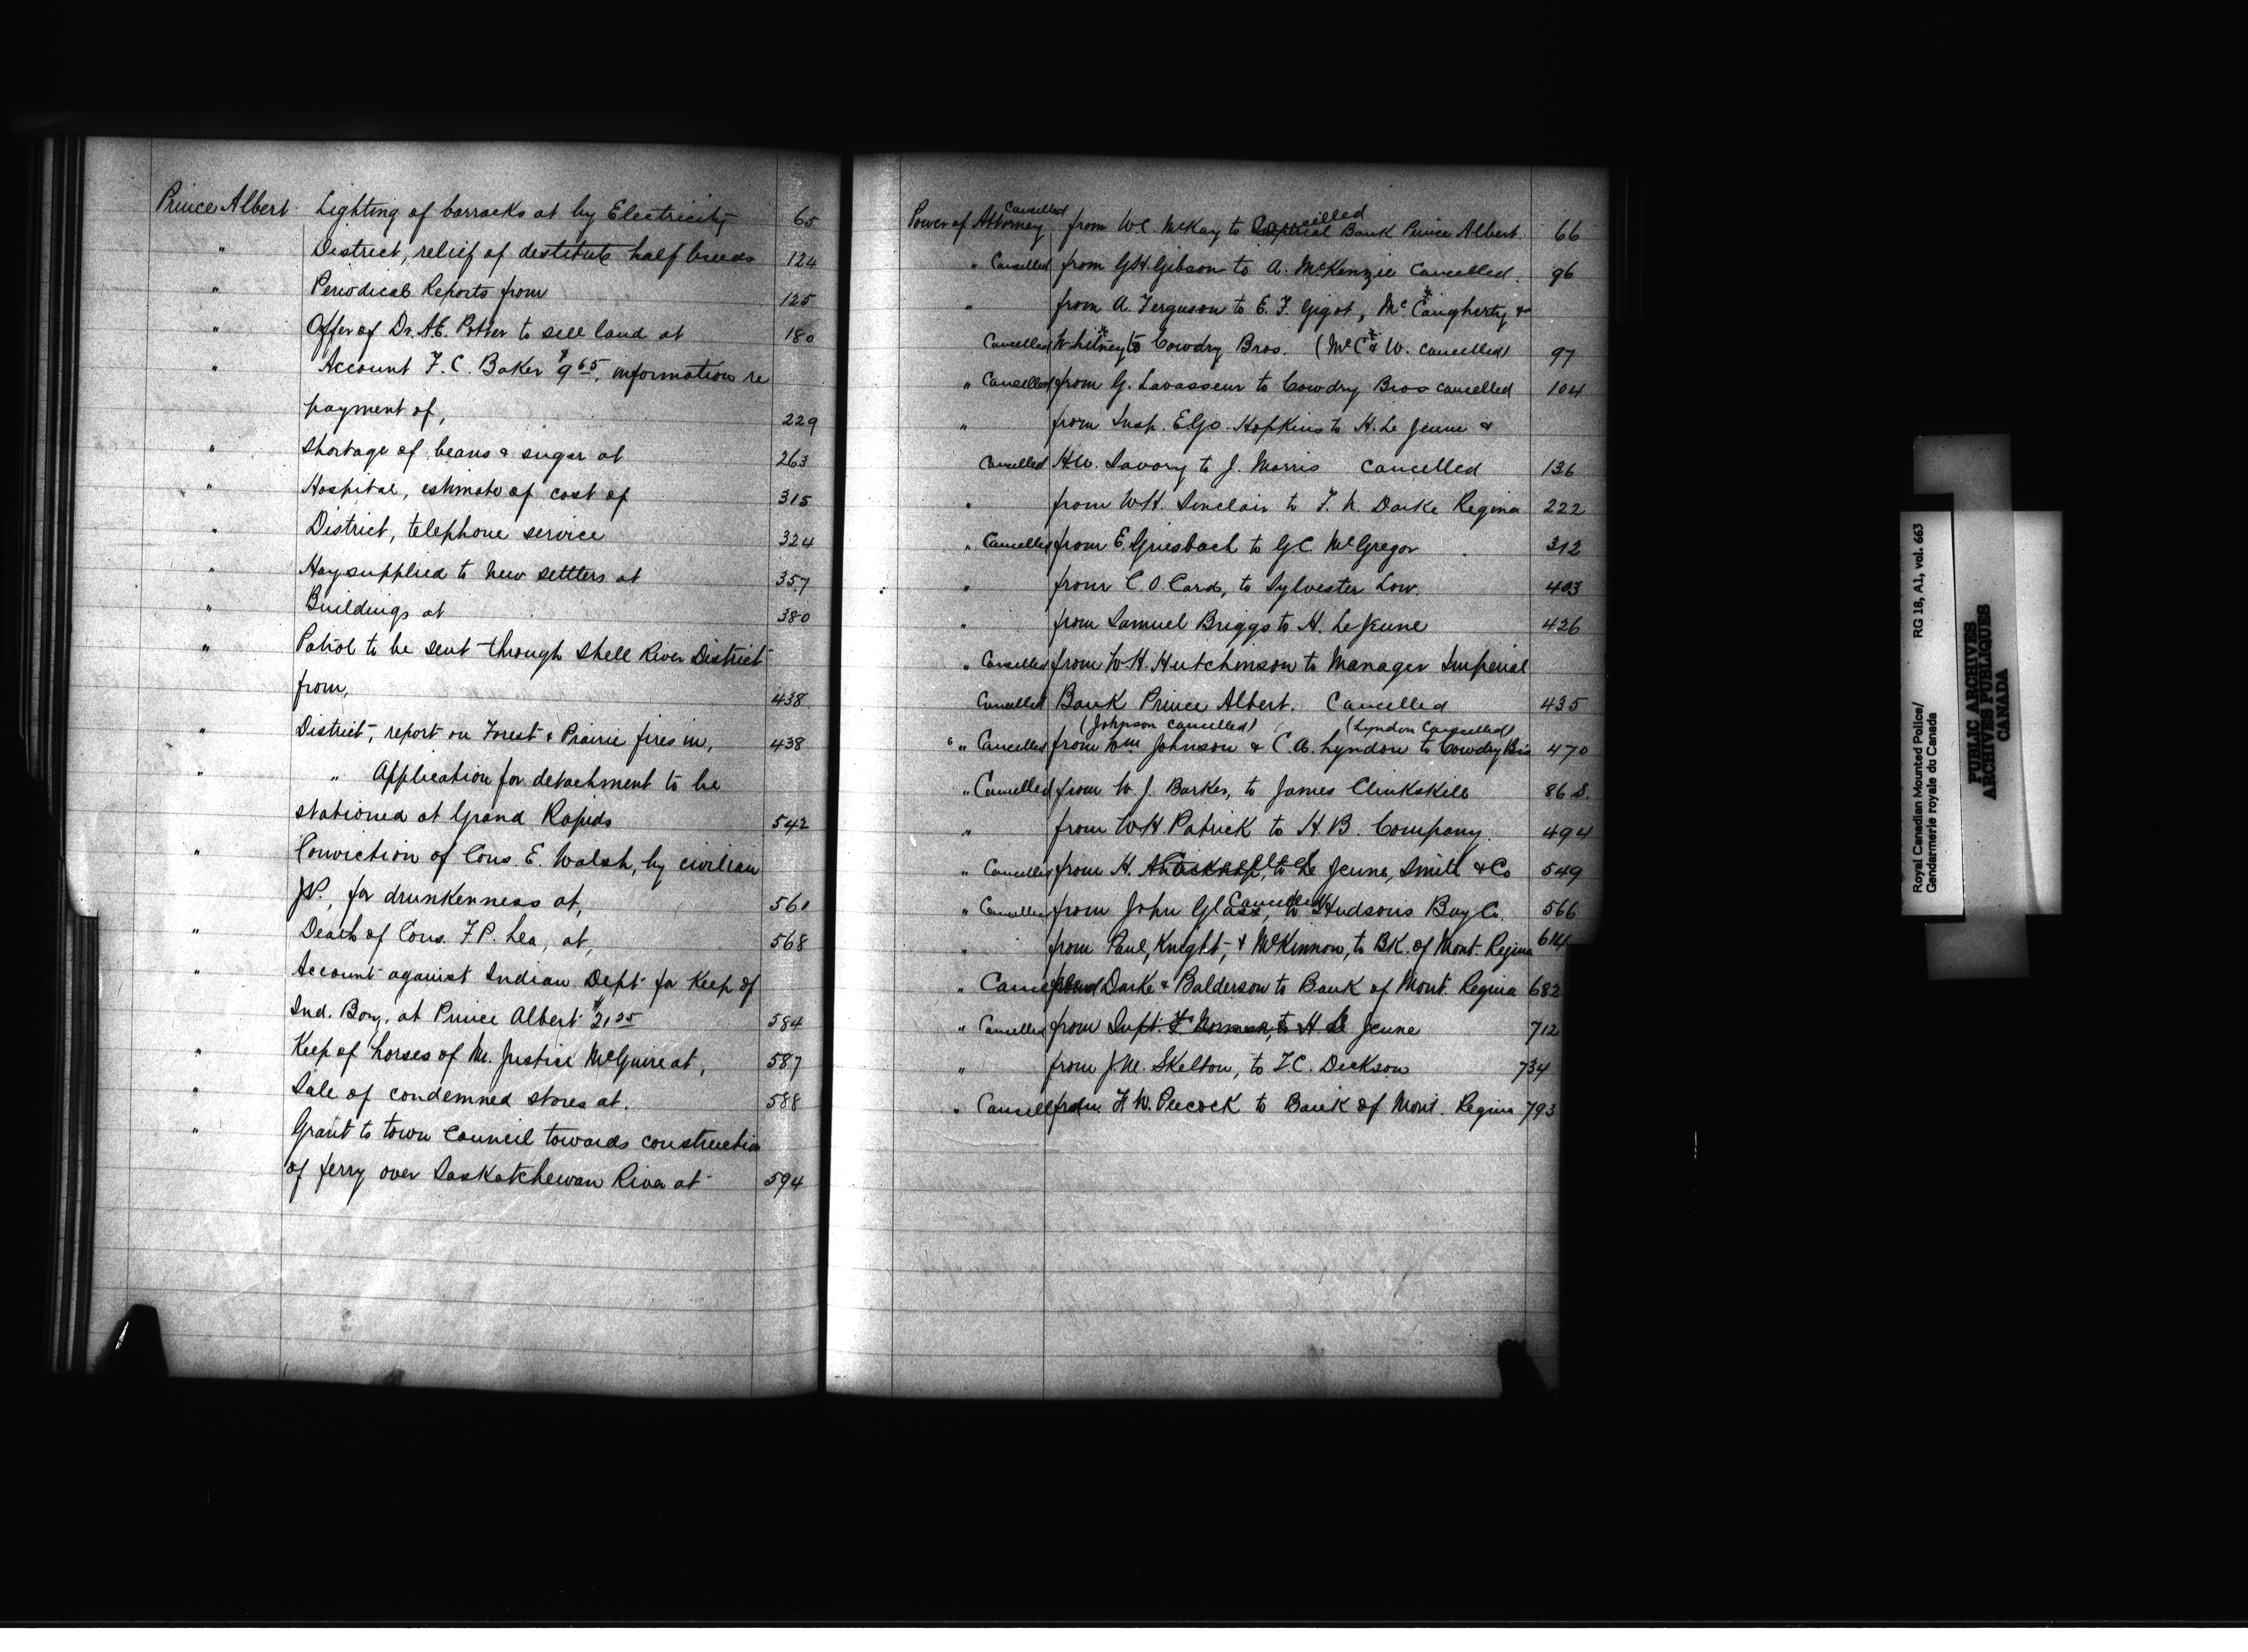 Prince Albert Lighting of barracks at by Electricity 65
" District, relief of destitute half breeds 124
" Periodical Reports from 125
" Offer of Dr. A.E. Potter to sell land at 180
" Account F. C. Baker $9.65, information re
payment of, 229
" Shortage of beans & sugar at 263
" Hospital, estimate of cost of 315
" District, telephone service 324
" Hay supplied to new settlers at 357
" Buildings at 380
" Patrol to be sent through Shell River District
from, 438
" District, report on Forest & Prairie fires in, 438
" " Application for detachment to be
stationed at Grand Rapids 542
" Conviction of Cons. E. Walsh, by civilian
J.P., for drunkenness at, 561
" Death of Cons. F.P. Lea, at, 568
" Account against Indian Dept. for Keep of
Ind. Boy, at Prince Albert $21.25 584
" Keep of horses of Mr. Justice McGuire at, 587
" Sale of condemned stores at. 588
" Grant to town Council towards construction
of ferry over Saskatchewan River at 594
Cancelled Cancelled
Power of Attorney from W.C. McKay to Imperial Bank Prince Albert. 66
" Cancelled from G.H. Gibson to A. McKenzie Cancelled. 96
" from A. Ferguson to E. F. Gigot, McCaugherty &
Cancelled Whitney to Cowdry Bros. (McC & W. cancelled) 97
" Cancelled from G. Lavasseur to Cowdry Bros cancelled 104
" from Insp. Hopkins to H. Le Jeune &
Cancelled H.W. Savory to J. Morris cancelled 136
" from W.H. Sinclair to F. N. Darke Regina 222
" Cancelled from E. Griesbach to G.C. McGregor 312
" from C. O. Card, to Sylvester Low. 403
" from Samuel Briggs to H. Le Jeune 426
" Cancelled from W.H. Hutchinson to Manager Imperial
Cancelled Bank Prince Albert. Cancelled 435
(Johnson cancelled) (Lyndon Cancelled)
" Cancelled from Wm Johnson & C.A. Lyndon to Cowdry Bros 470
" Cancelled from W. J. Barker, to James Clinkskill 86 S.
" from W H Patrick to H. B. Company. 494
" Cancelled from H. to Le Jeune, Smith & Co 549
Cancelled
" Cancelled from John Glass, to Hudsons Bay Co. 566
" from Paul, Knight, & McKinnon, to BK. of Mont. Regina 614
" Cancelled from Darke & Balderson to Bank of Mont. Regina 682
" Cancelled from Supt. F. Norman, to H. Le Jeune 712
" from J.M. Skelton, to T.C. Dickson 734
" Cancelled from F. W. Peecock to Bank of Mont. Regina 793
Royal Canadian Mounted Police/
Gendarmerie royale du Canada
RG 18, A1, vol. 663
PUBLIC ARCHIVES
ARCHIVES PUBLIQUES
CANADA